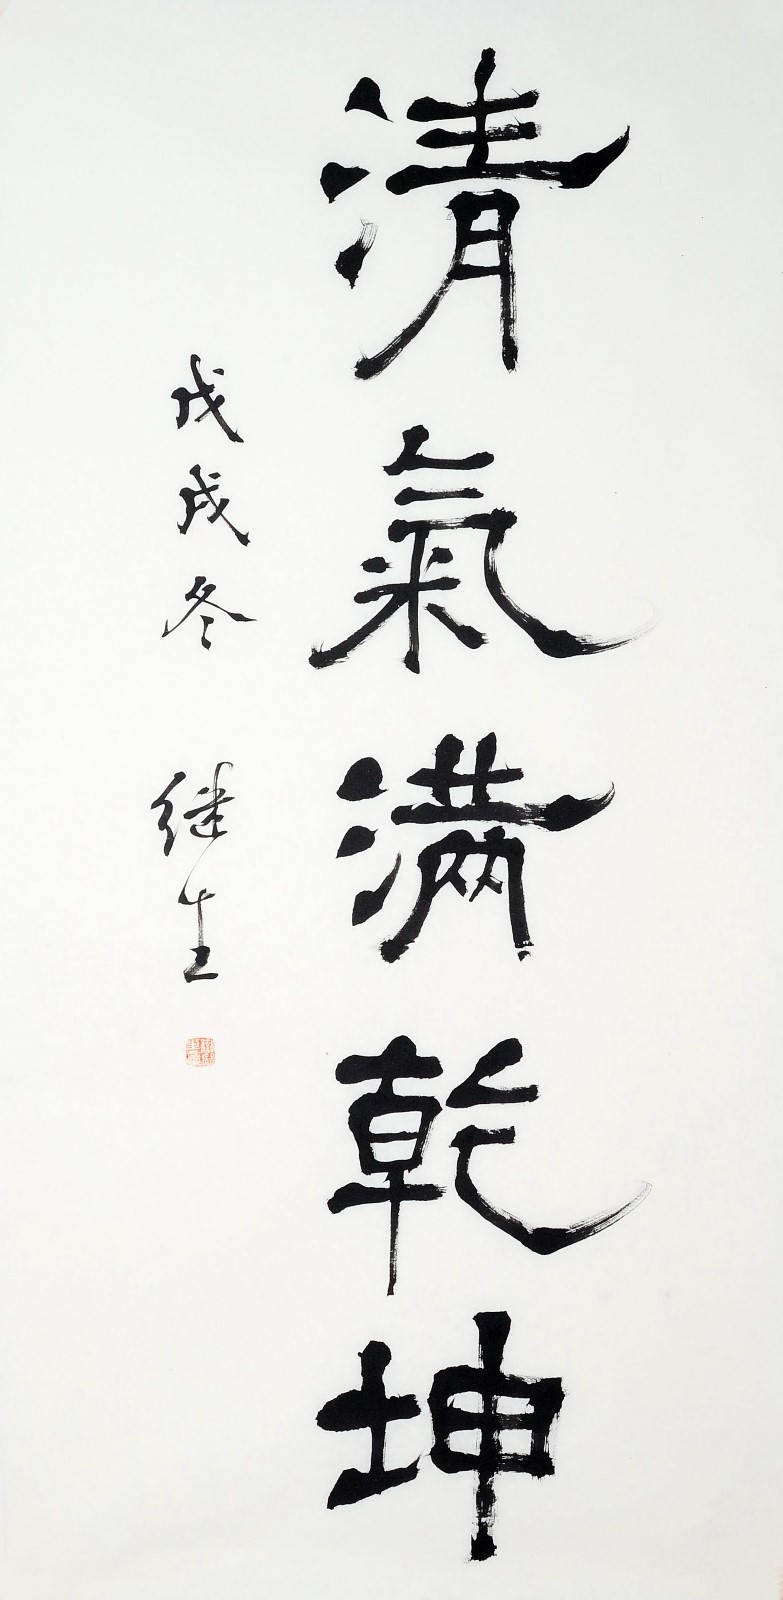 清氣满乾坤
戊戌冬 继生